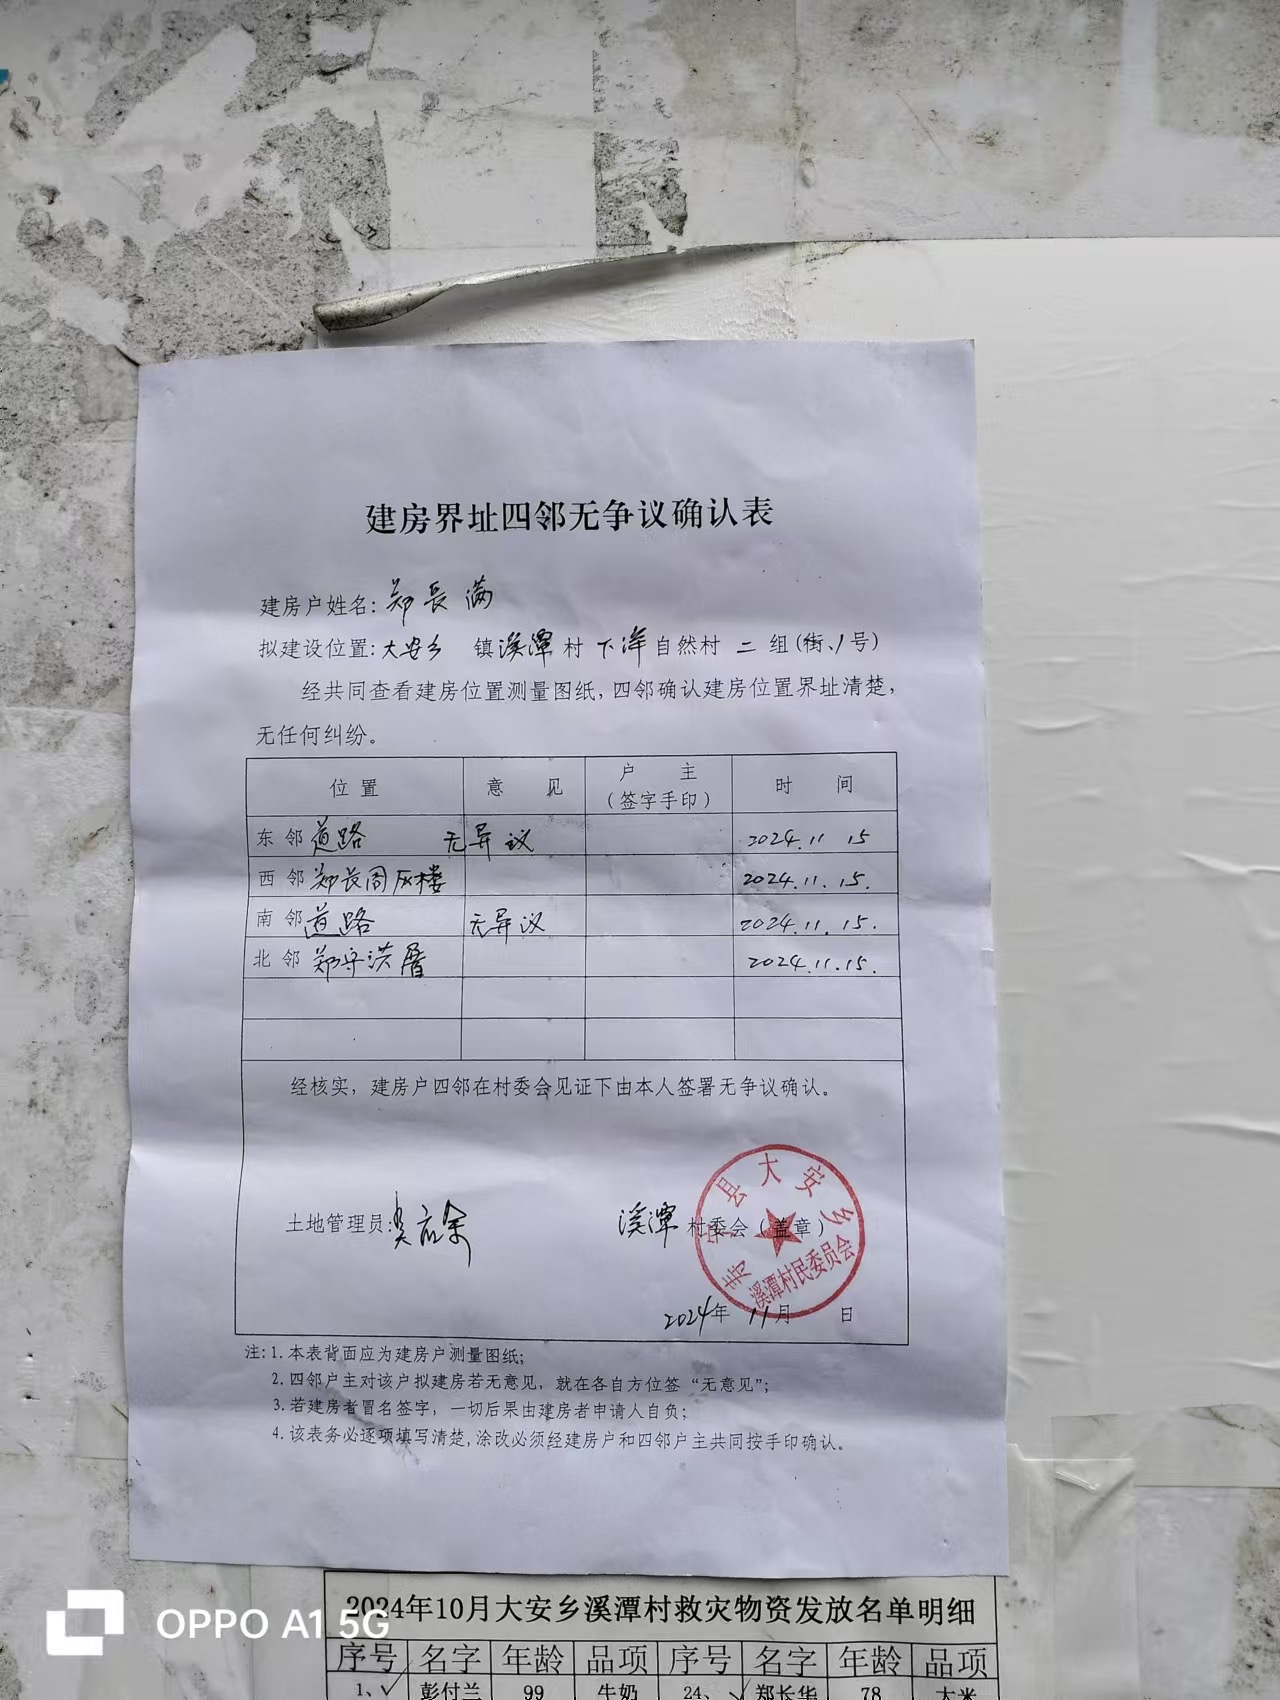 建房界址四邻无争议确认表
建房户姓名：郑長满
拟建设位置：大安乡 镇溪潭村 下洋自然村 二 组（街、1号）
经共同查看建房位置测量图纸，四邻确认建房位置界址清楚，
无任何纠纷。
位置 意见 户主（签字手印） 时间
东邻 道路 无异议 2024.11 15
西邻 郑長周灰楼 2024.11.15.
南邻 道路 无异议 2024.11.15.
北邻 郑守洪厝 2024.11.15.
经核实，建房户四邻在村委会见证下由本人签署无争议确认。
土地管理员：吴应余 溪潭村委会（盖章）
县大安乡
溪潭村民委员会
2024年 11月 日
注：1.本表背面应为建房户测量图纸；
2.四邻户主对该户拟建房若无意见，就在各自方位签“无意见”；
3.若建房者冒名签字，一切后果由建房者申请人自负；
4.该表务必逐项填写清楚，涂改必须经建房户和四邻户主共同按手印确认。
2024年10月大安乡溪潭村救灾物资发放名单明细
序号 名字 年龄 品项 序号 名字 年龄 品项
1、✓ 彭付兰 99 牛奶 24、✓ 郑长华 78 大米
OPPO A1 5G